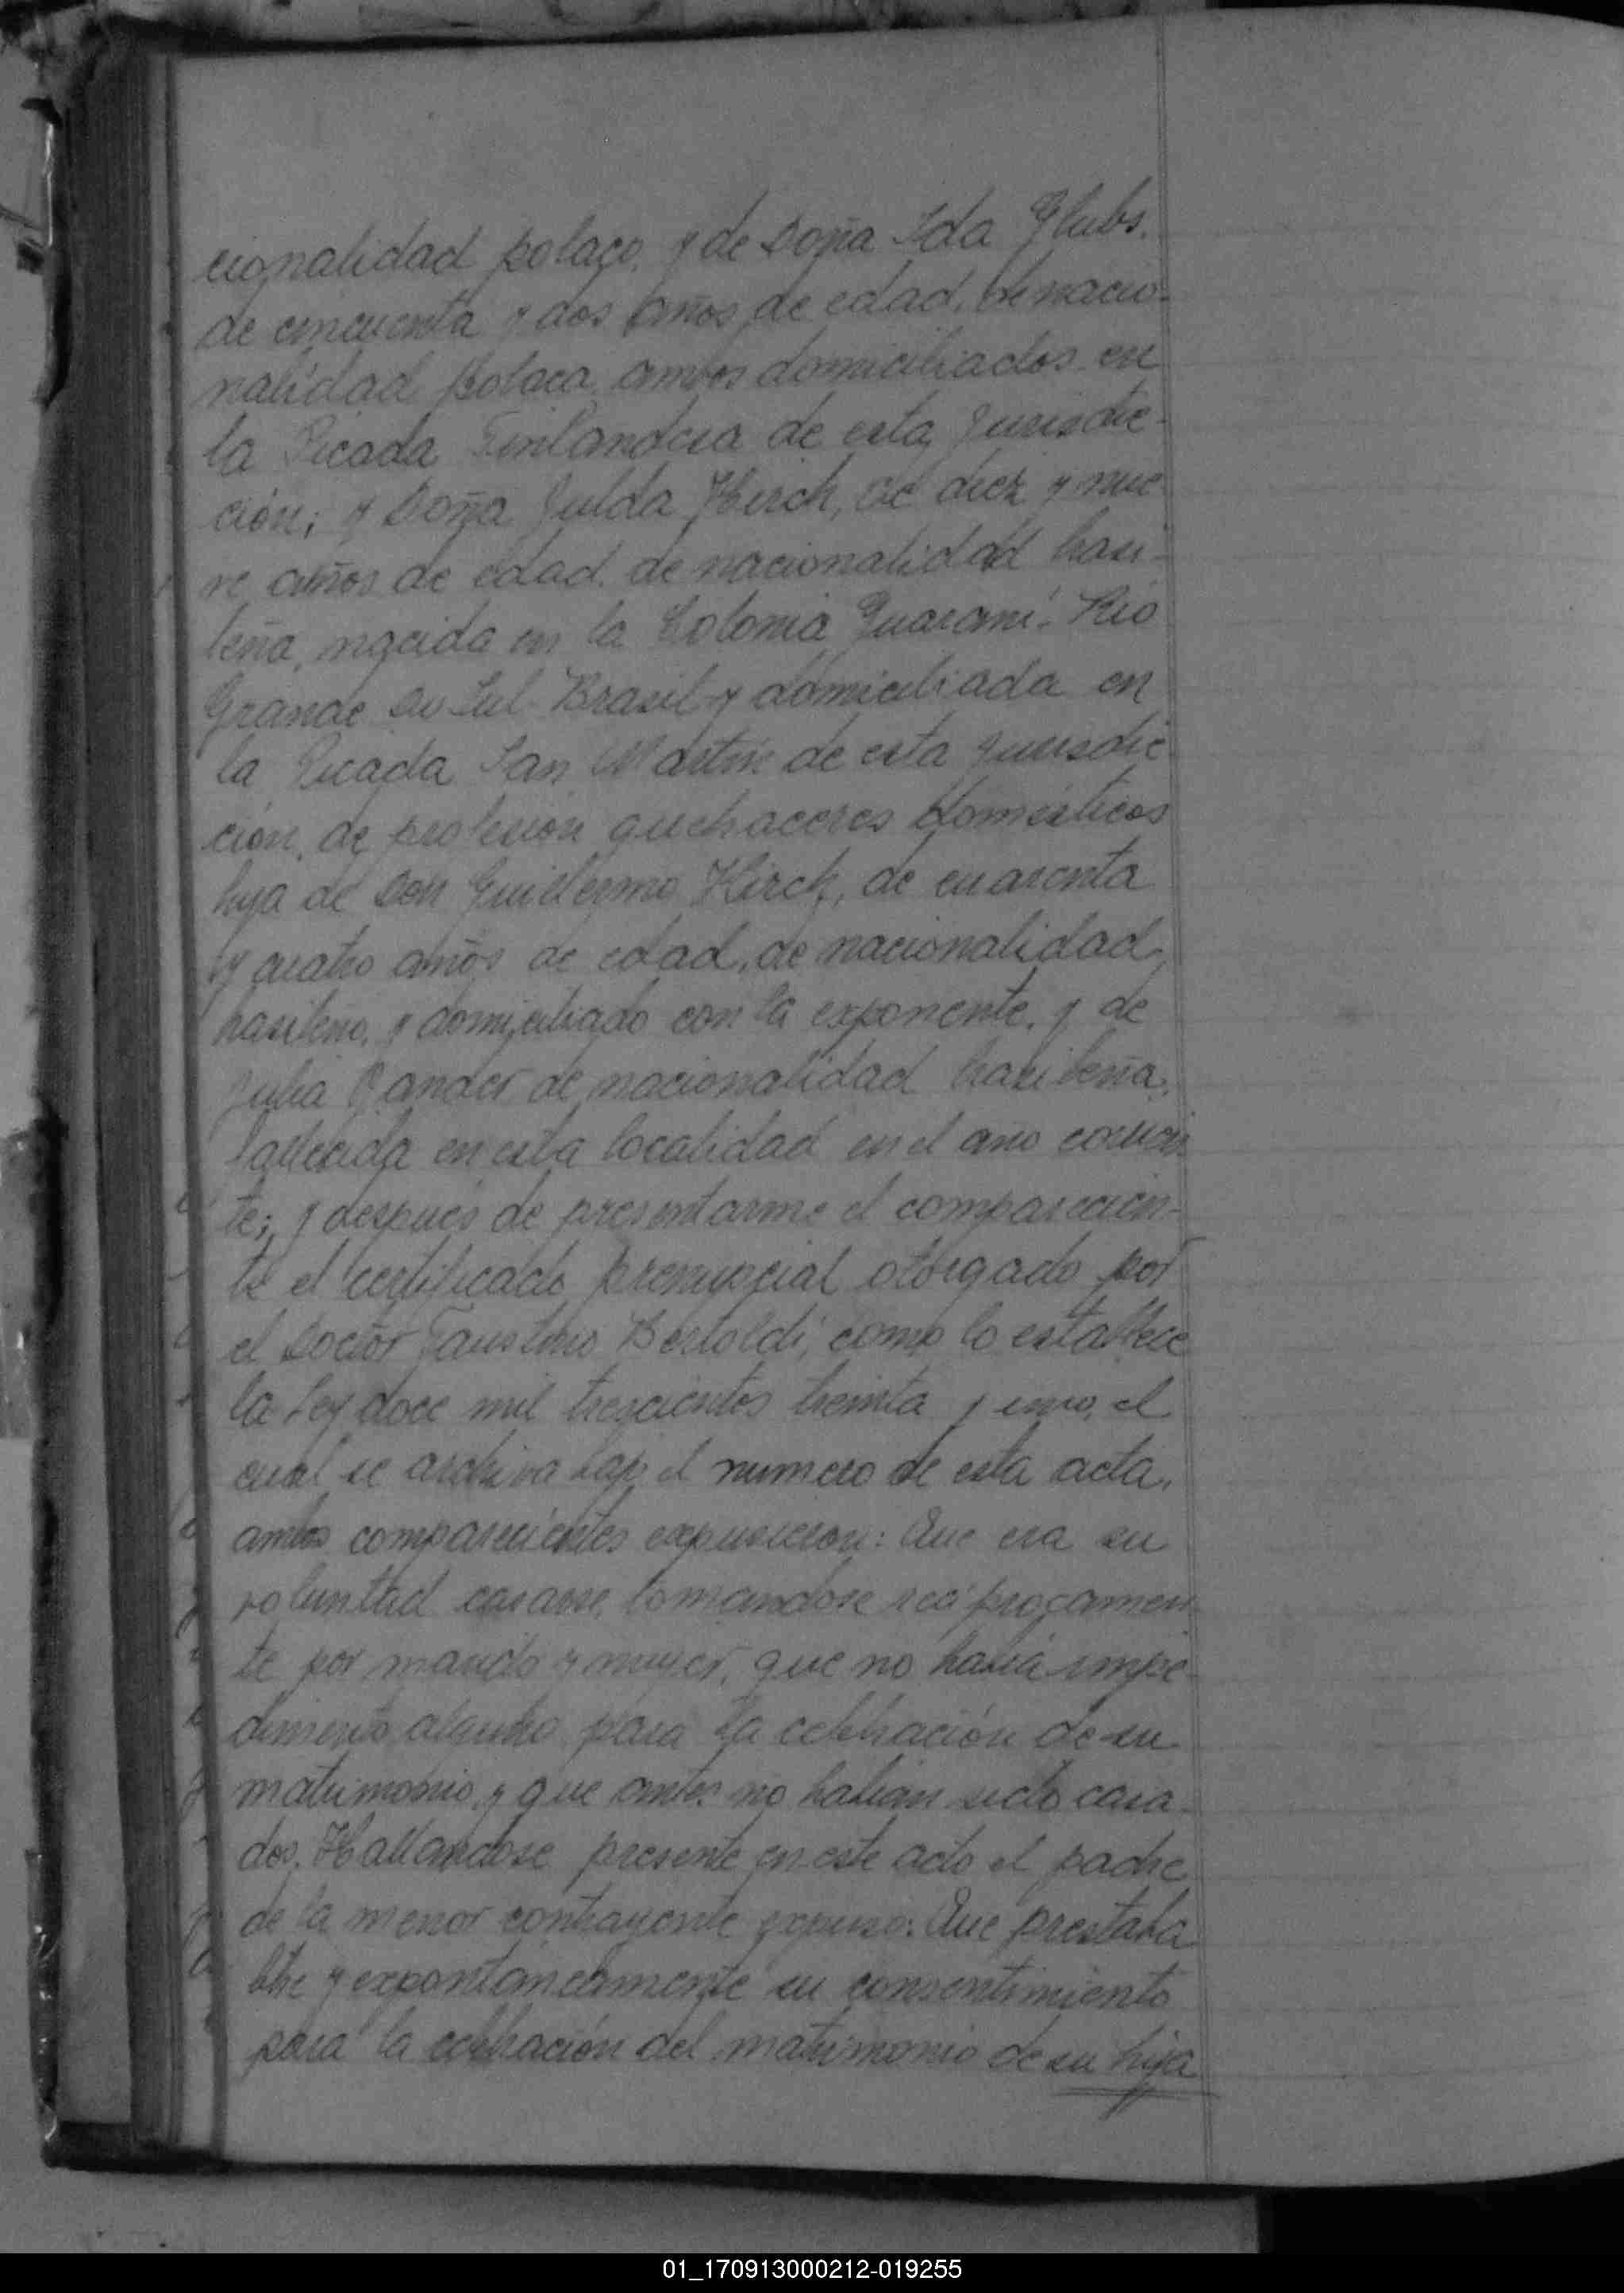 cionalidad polaco, y de Doña Ida Glubs,
de cincuenta y dos años de edad, de nacio-
nalidad polaca, ambos domiciliados en
la Picada Finlandesa de esta jurisdic-
ción; y Doña Julda Kirch, de diez y nue
ve años de edad, de nacionalidad brasi-
leña, nacida en la Colonia Guaraní- Rio
Grande du Sul- Brasil y domiciliada en
la Picada San Martin de esta jurisdic
ción, de profesión quehaceres domésticos
hija de Don Guillermo Kirch, de cuarenta
y cuatro años de edad, de nacionalidad
brasileño, y domiciliado con la exponente, y de
Julia de nacionalidad brasileña,
fallecida en esta localidad en el año corrien
te; y después de presentarme el comparecien-
te el certificado prenupcial otorgado por
el Doctor Faustino Bertoldi, como lo establece
la Ley doce mil trescientos treinta y uno, el
cual se archiva bajo el numero de esta acta,
ambos comparecientes expusieron: Que era su
voluntad casarse, tomandose reciprocamen
te por marido y mujer, que no había impe-
dimento alguno para la celebración de su
matrimonio, y que antes no habían sido casa-
dos. Hallandose presente en este acto el padre
de la menor contrayente expuso: Que prestaba
libre y expontáneamente su consentimiento
para la celebración del matrimonio de su hija
01_170913000212-019255